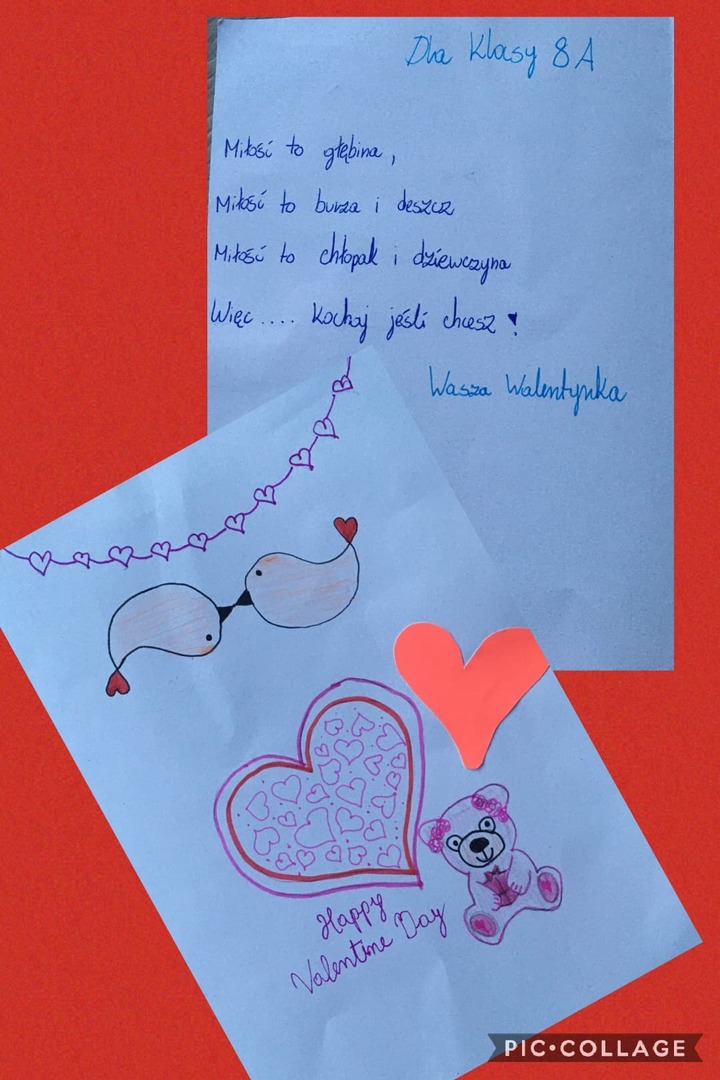 Dla Klasy 8A
Miłość to głębina,
Miłość to burza i deszcz
Miłość to chłopak i dziewczyna
Więc.... Kochaj jeśli chcesz!
Wasza Walentynka
Happy
Valentine Day
PIC•COLLAGE